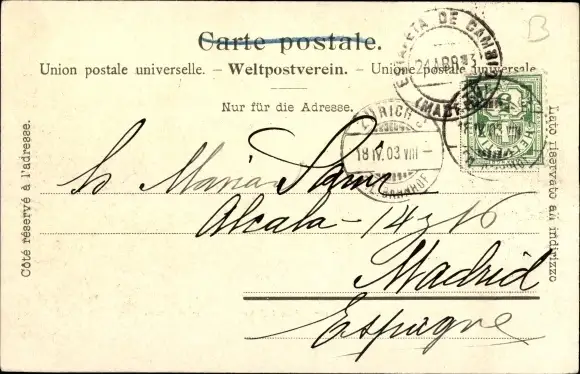 B
Carte postale.
ESTAFETA DE CAMBIO
21 ABR 03
(MADRID)
Union postale universelle. – Weltpostverein. – Unione postale universale
Nur für die Adresse.
ZÜRICH
18 IV. 03 VIII –
BAHNHOF
18 IV. 03 VIII
HELVETIA
Côté réservé à l'adresse.
Lato riservato all'indirizzo
Alcala – 14 y 16
Madrid
Espagne